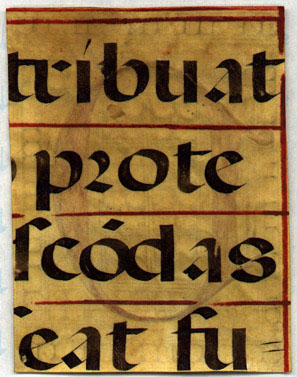 tríbuat
prote
ſcódas
eat fu=